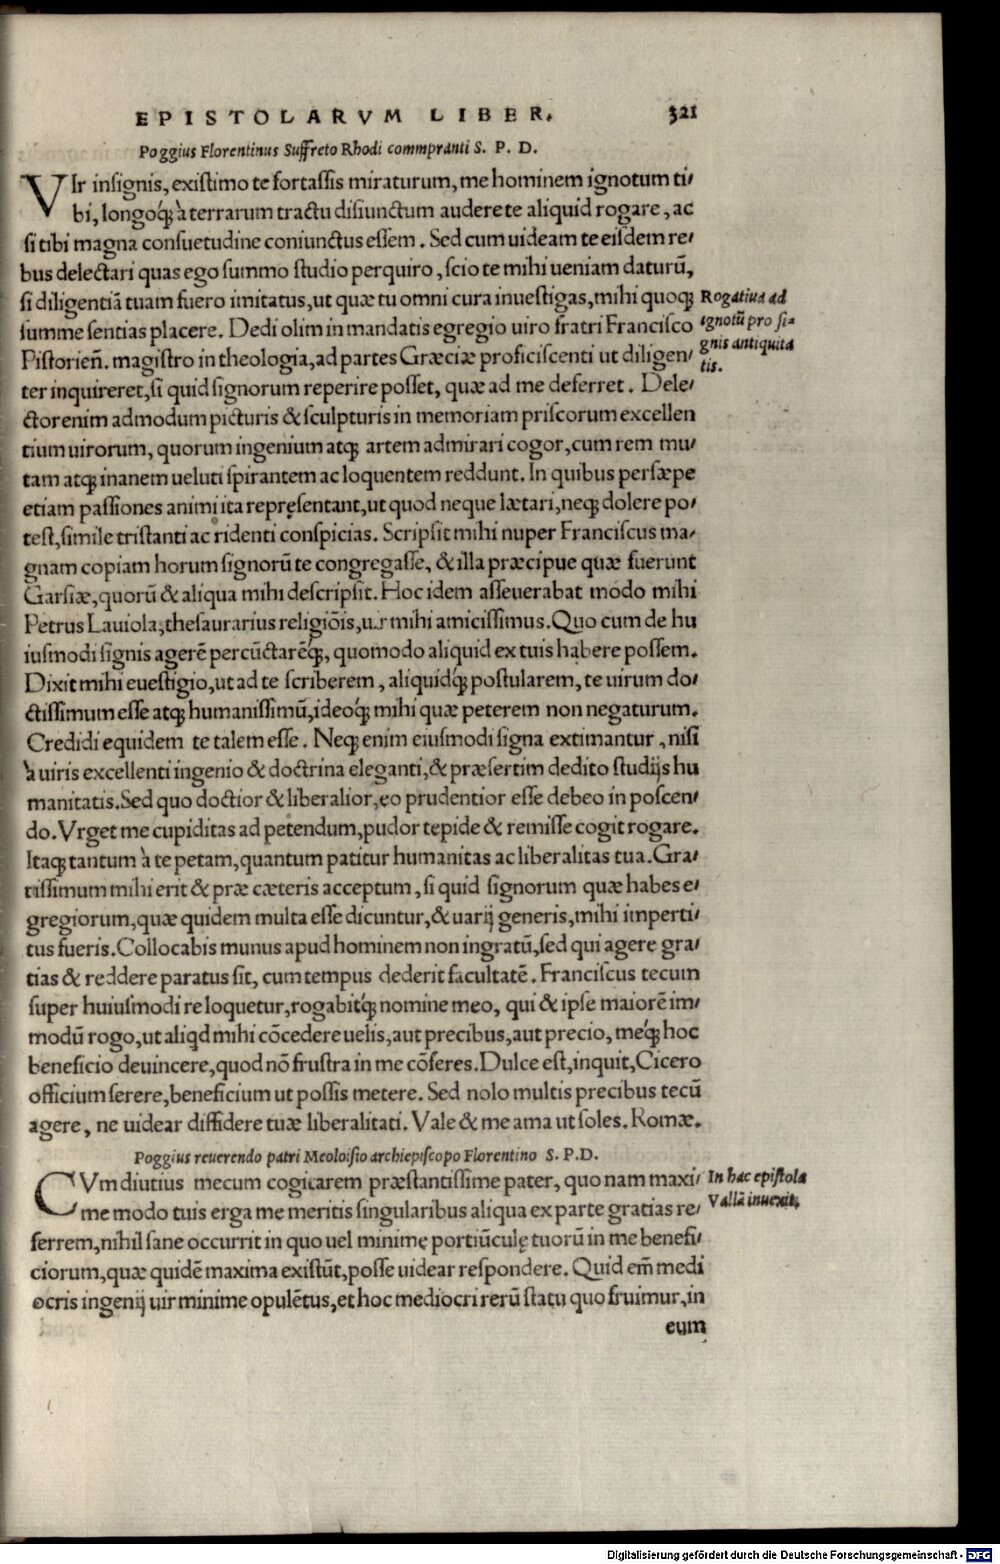 EPISTOLARVM LIBER. 321
Poggius Florentinus Suffreto Rhodi commpranti S. P. D.
VIr insignis, existimo te fortassis miraturum, me hominem ignotum ti/
bi, longoq́; à terrarum tractu disiunctum audere te aliquid rogare, ac
si tibi magna consuetudine coniunctus essem. Sed cum uideam te eisdem re/
bus delectari quas ego summo studio perquiro, scio te mihi ueniam daturũ,
si diligentiã tuam fuero imitatus, ut quæ tu omni cura inuestigas, mihi quoq;
summe sentias placere. Dedi olim in mandatis egregio uiro fratri Francisco
Pistorieñ. magistro in theologia, ad partes Græciæ proficiscenti ut diligen/
ter inquireret, si quid signorum reperire posset, quæ ad me deferret. Dele/
ctor enim admodum picturis & sculpturis in memoriam priscorum excellen
tium uirorum, quorum ingenium atq; artem admirari cogor, cum rem mu/
tam atq; inanem ueluti spirantem ac loquentem reddunt. In quibus persæpe
etiam passiones animi ita repręsentant, ut quod neque lætari, neq; dolere po/
test, simile tristanti ac ridenti conspicias. Scripsit mihi nuper Franciscus ma/
gnam copiam horum signorũ te congregasse, & illa præcipue quæ fuerunt
Garsiæ, quorũ & aliqua mihi descripsit. Hoc idem asseuerabat modo mihi
Petrus Lauiola, thesaurarius religiõis, uir mihi amicissimus. Quo cum de hu
iusmodi signis agerẽ percũctarẽq́;, quomodo aliquid ex tuis habere possem.
Dixit mihi euestigio, ut ad te scriberem, aliquidq́; postularem, te uirum do/
ctissimum esse atq; humanissimũ, ideoq́; mihi quæ peterem non negaturum.
Credidi equidem te talem esse. Neq; enim eiusmodi signa extimantur, nisi
à uiris excellenti ingenio & doctrina eleganti, & præsertim dedito studijs hu
manitatis. Sed quo doctior & liberalior, eo prudentior esse debeo in poscen/
do. Vrget me cupiditas ad petendum, pudor tepide & remisse cogit rogare.
Itaq; tantum à te petam, quantum patitur humanitas ac liberalitas tua. Gra/
tissimum mihi erit & præ cæteris acceptum, si quid signorum quæ habes e/
gregiorum, quæ quidem multa esse dicuntur, & uarij generis, mihi imperti/
tus fueris. Collocabis munus apud hominem non ingratũ, sed qui agere gra/
tias & reddere paratus sit, cum tempus dederit facultatẽ. Franciscus tecum
super huiusmodi re loquetur, rogabitq́; nomine meo, qui & ipse maiorẽ im/
modũ rogo, ut aliqd mihi cõcedere uelis, aut precibus, aut precio, meq́; hoc
beneficio deuincere, quod nõ frustra in me cõferes. Dulce est, inquit, Cicero
officium serere, beneficium ut possis metere. Sed nolo multis precibus tecũ
agere, ne uidear diffidere tuæ liberalitati. Vale & me ama ut soles. Romæ.
Rogatiua ad
ignotũ pro si=
gnis antiquita
tis.
Poggius reuerendo patri Meoloisio archiepiscopo Florentino S. P. D.
CVm diutius mecum cogitarem præstantissime pater, quo nam maxi/
me modo tuis erga me meritis singularibus aliqua ex parte gratias re/
ferrem, nihil sane occurrit in quo uel minimę portiũculę tuorũ in me benefi/
ciorum, quæ quidẽ maxima existũt, posse uidear respondere. Quid em̃ medi
ocris ingenij uir minime opulẽtus, et hoc mediocri rerũ statu quo fruimur, in
In hac epistola
Vallã inuexit.
eum
Digitalisierung gefördert durch die Deutsche Forschungsgemeinschaft - DFG